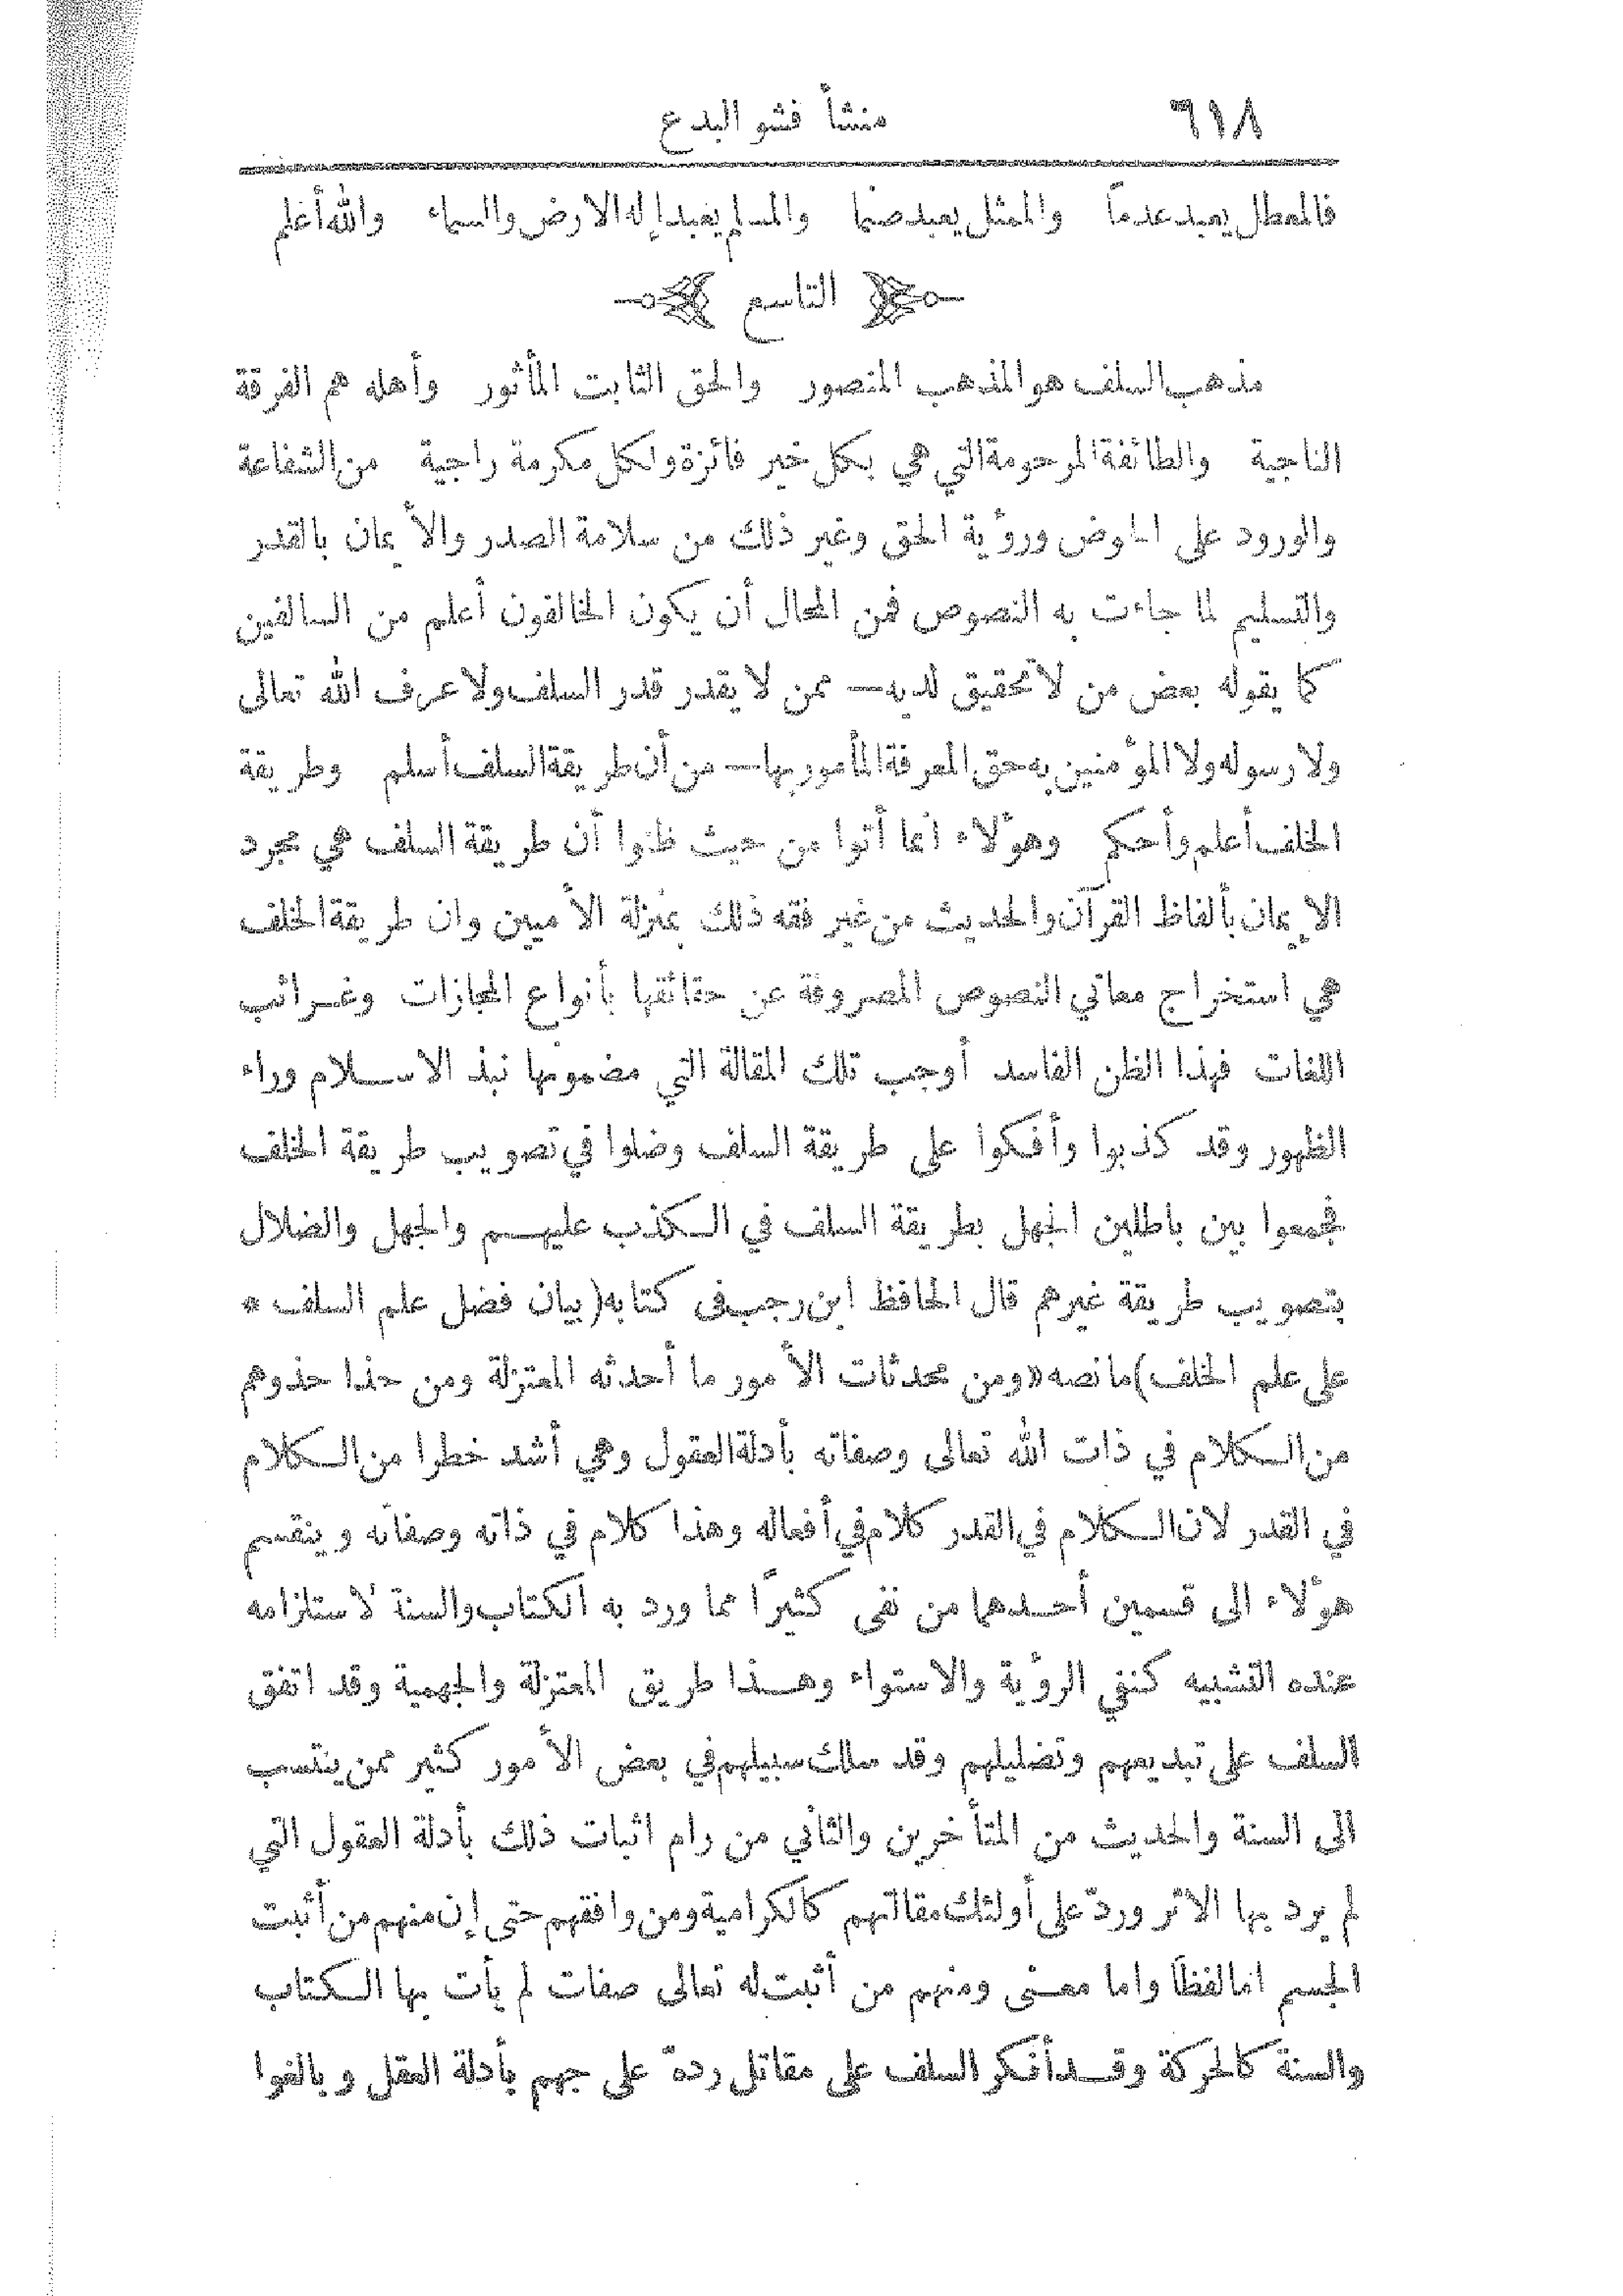 ٦١٨ منشأ فشو البدع
فالمعطل يعبد عدماً والممثل يعبد صنما والمسلم يعبد إله الارض والسماء والله أعلم
التاسع
مذهب السلف هو المذهب المنصور والحق الثابت المأثور وأهله هم الفرقة
الناجية والطائفة المرحومة التي هي بكل خير فائزة ولكل مكرمة راجية من الشفاعة
والورود على الحوض ورؤية الحق وغير ذلك من سلامة الصدر والأيمان بالقدر
والتسليم لما جاءت به النصوص فمن المحال أن يكون الخالفون أعلم من السالفين
كما يقوله بعض من لا تحقيق لديه — ممن لا يقدر قدر السلف ولا عرف الله تعالى
ولا رسوله ولا المؤمنين به حق المعرفة المأمور بها — من أن طريقة السلف أسلم وطريقة
الخلف أعلم وأحكم وهؤلاء انما أتوا من حيث ظنوا أن طريقة السلف هي مجرد
الايمان بألفاظ القرآن والحديث من غير فقه ذلك بمنزلة الأميين وان طريقة الخلف
هي استخراج معاني النصوص المصروفة عن حقائقها بأنواع المجازات وغرائب
اللغات فهذا الظن الفاسد أوجب تلك المقالة التي مضمونها نبذ الاسلام وراء
الظهور وقد كذبوا وأفكوا على طريقة السلف وضلوا في تصويب طريقة الخلف
فجمعوا بين باطلين الجهل بطريقة السلف في الكذب عليهم والجهل والضلال
بتصويب طريقة غيرهم قال الحافظ ابن رجب فى كتابه (بيان فضل علم السلف *
على علم الخلف) ما نصه « ومن محدثات الأمور ما أحدثه المعتزلة ومن حذا حذوهم
من الكلام في ذات الله تعالى وصفاته بأدلة العقول وهي أشد خطرا من الكلام
في القدر لان الكلام في القدر كلام في أفعاله وهذا كلام في ذاته وصفاته وينقسم
هؤلاء الى قسمين أحدهما من نفى كثيرًا مما ورد به الكتاب والسنة لاستلزامه
عنده التشبيه كنفي الرؤية والاستواء وهذا طريق المعتزلة والجهمية وقد اتفق
السلف على تبديعهم وتضليلهم وقد سلك سبيلهم في بعض الأمور كثير ممن ينتسب
الى السنة والحديث من المتأخرين والثاني من رام اثبات ذلك بأدلة العقول التي
لم يرد بها الاثر وردّ على أولئك مقالتهم كالكرامية ومن وافقهم حتى إن منهم من أثبت
الجسم اما لفظاً واما معنى ومنهم من أثبت له تعالى صفات لم يأت بها الكتاب
والسنة كالحركة وقد أنكر السلف على مقاتل ردهّ على جهم بأدلة العقل وبالغوا